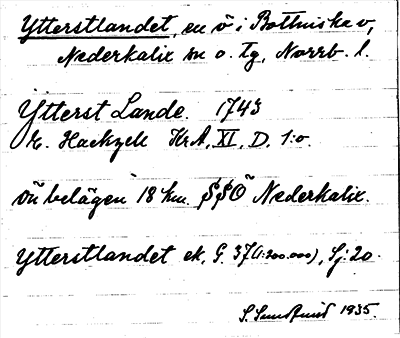 Ytterstlandet, en ö i Bottniska v,
Nederkalix sn o. tg, Norrb. l.
Ytterst Lande. 1743
E. Hackzell KrA, XI, D, 1:o.
Ön belägen 18 km. SSO Nederkalix.
Ytterstlandet ek, G. 37 (1:200.000), Sj: 20.
S. Sundqvist 1935.